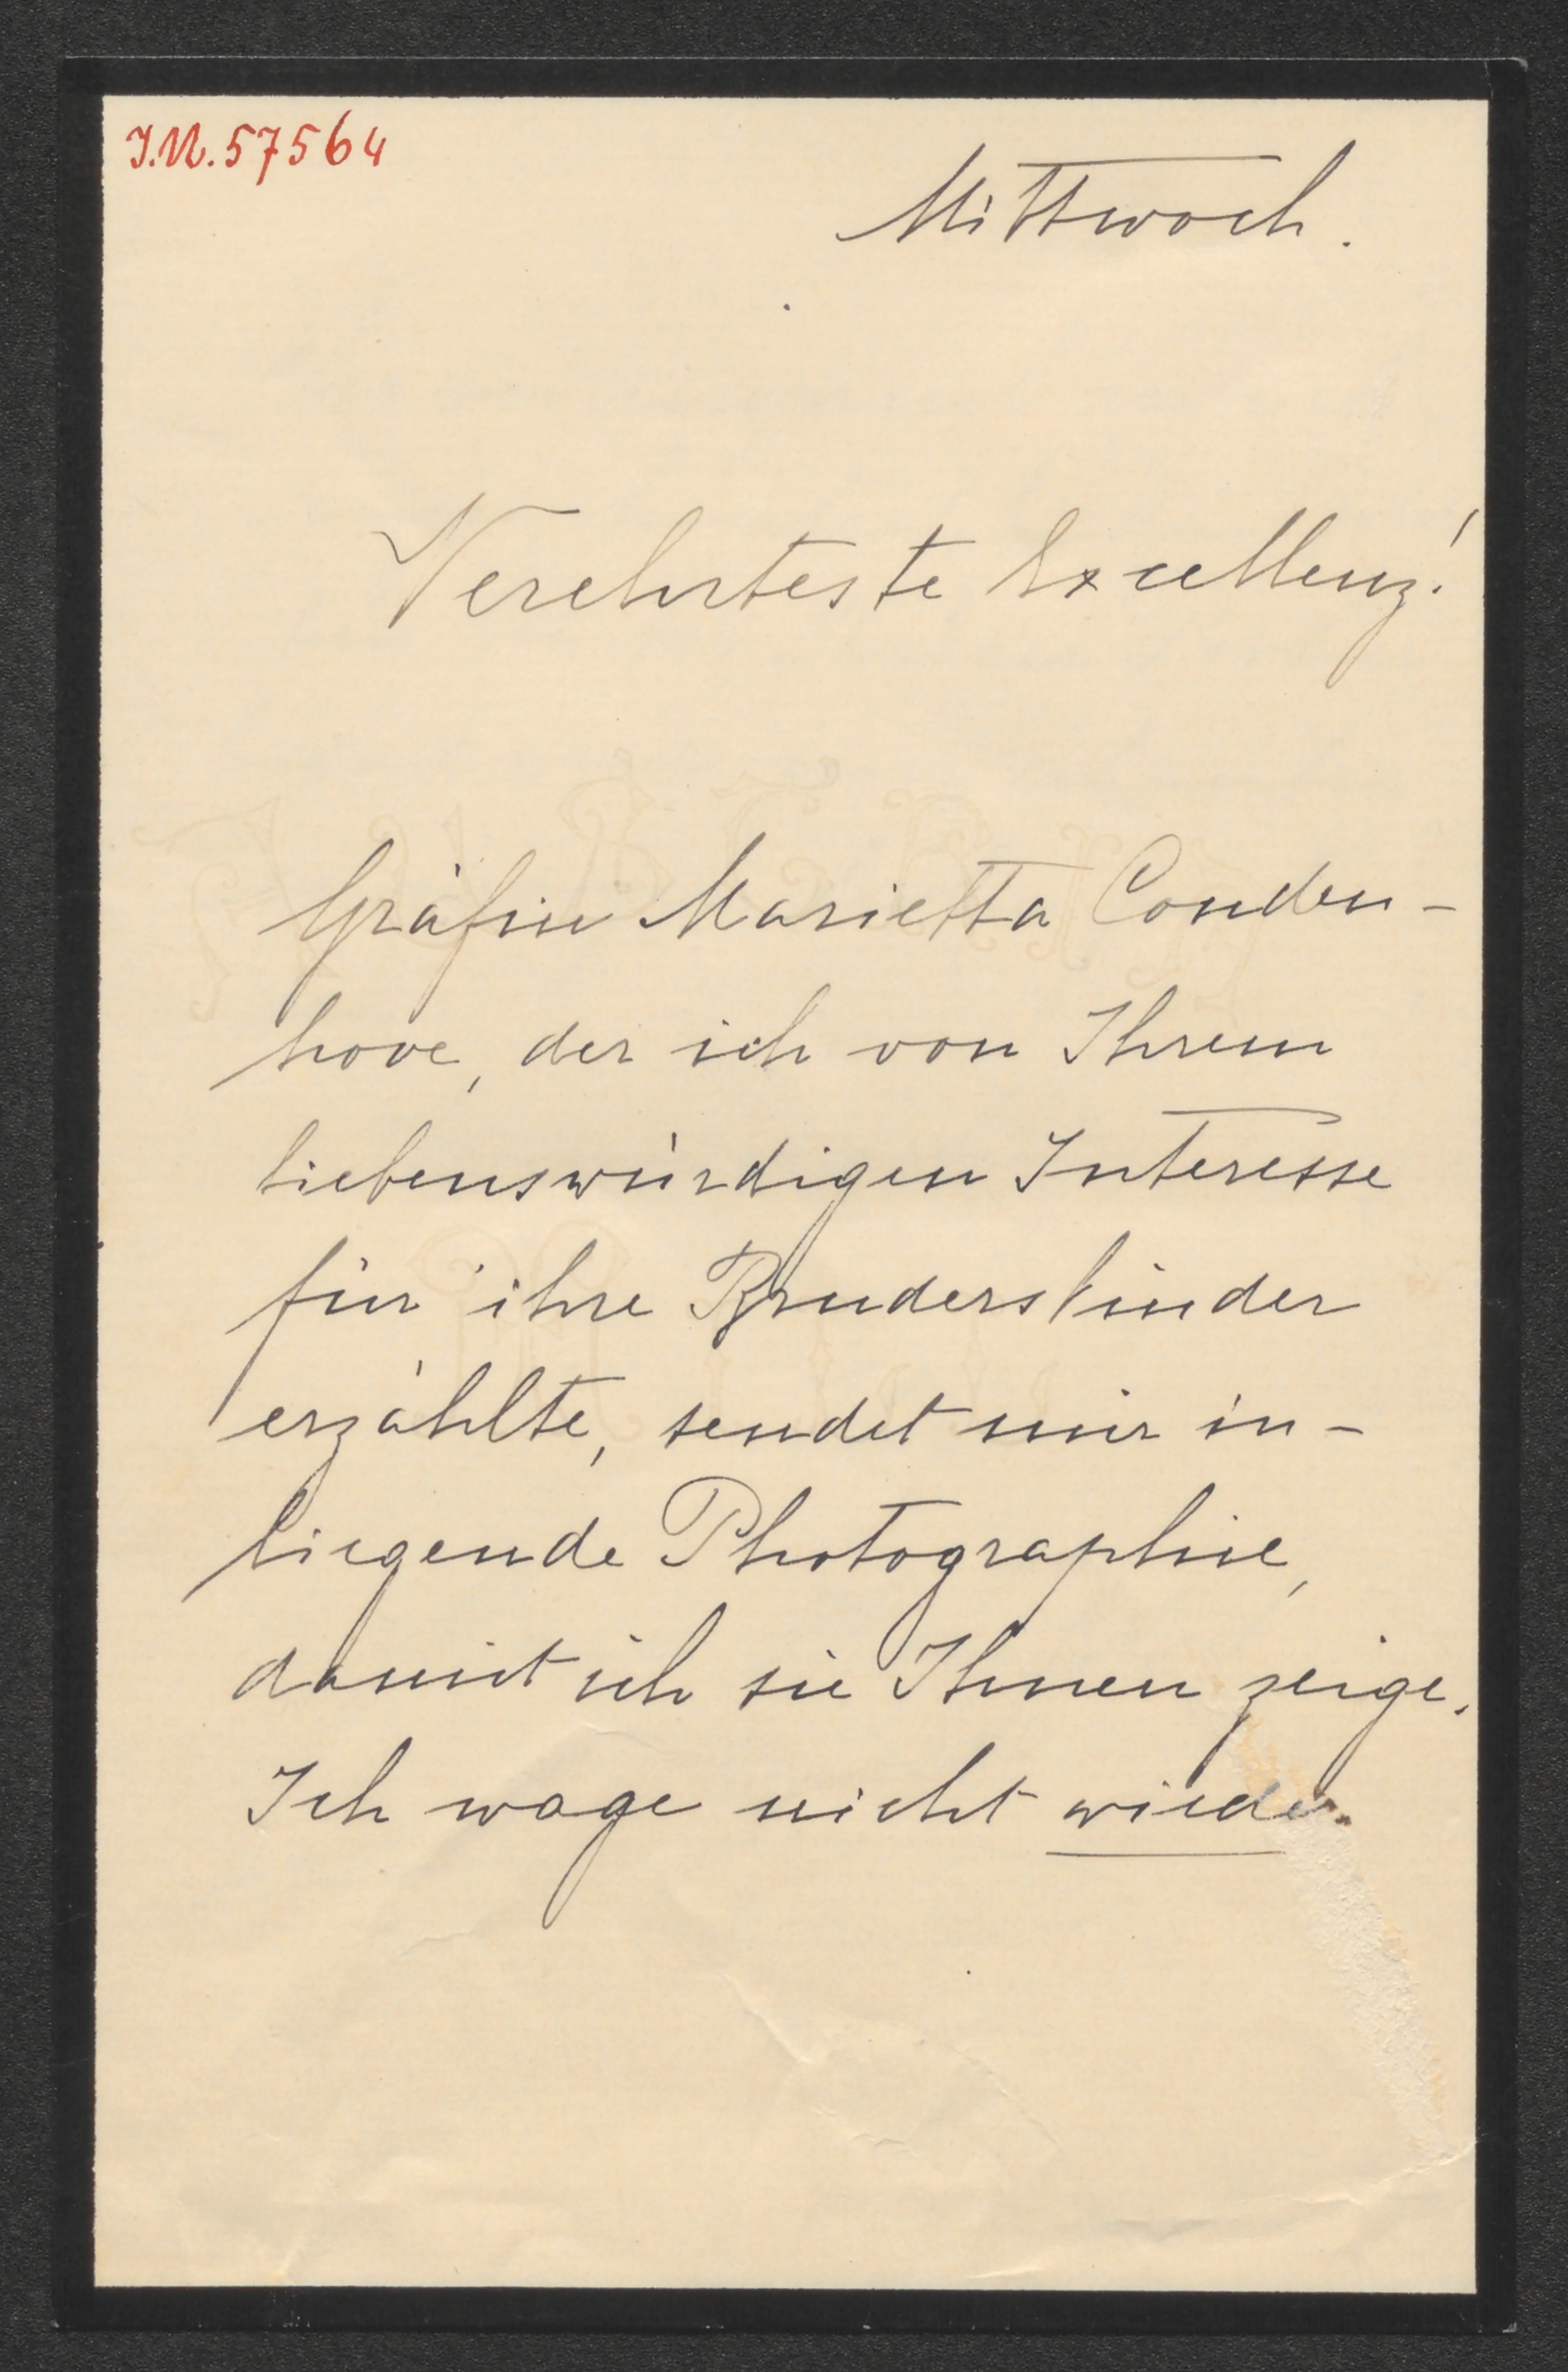 I.N. 57564
Mittwoch.
Verehrteste Excellenz!
Gräfin Marietta Couden-
hove, der ich von Ihrem
liebenswürdigen Interesse
für ihre Bruderskinder
erzählte, sendet mir in-
liegende Photographie,
damit ich sie Ihnen zeige.
Ich wage nicht wieder